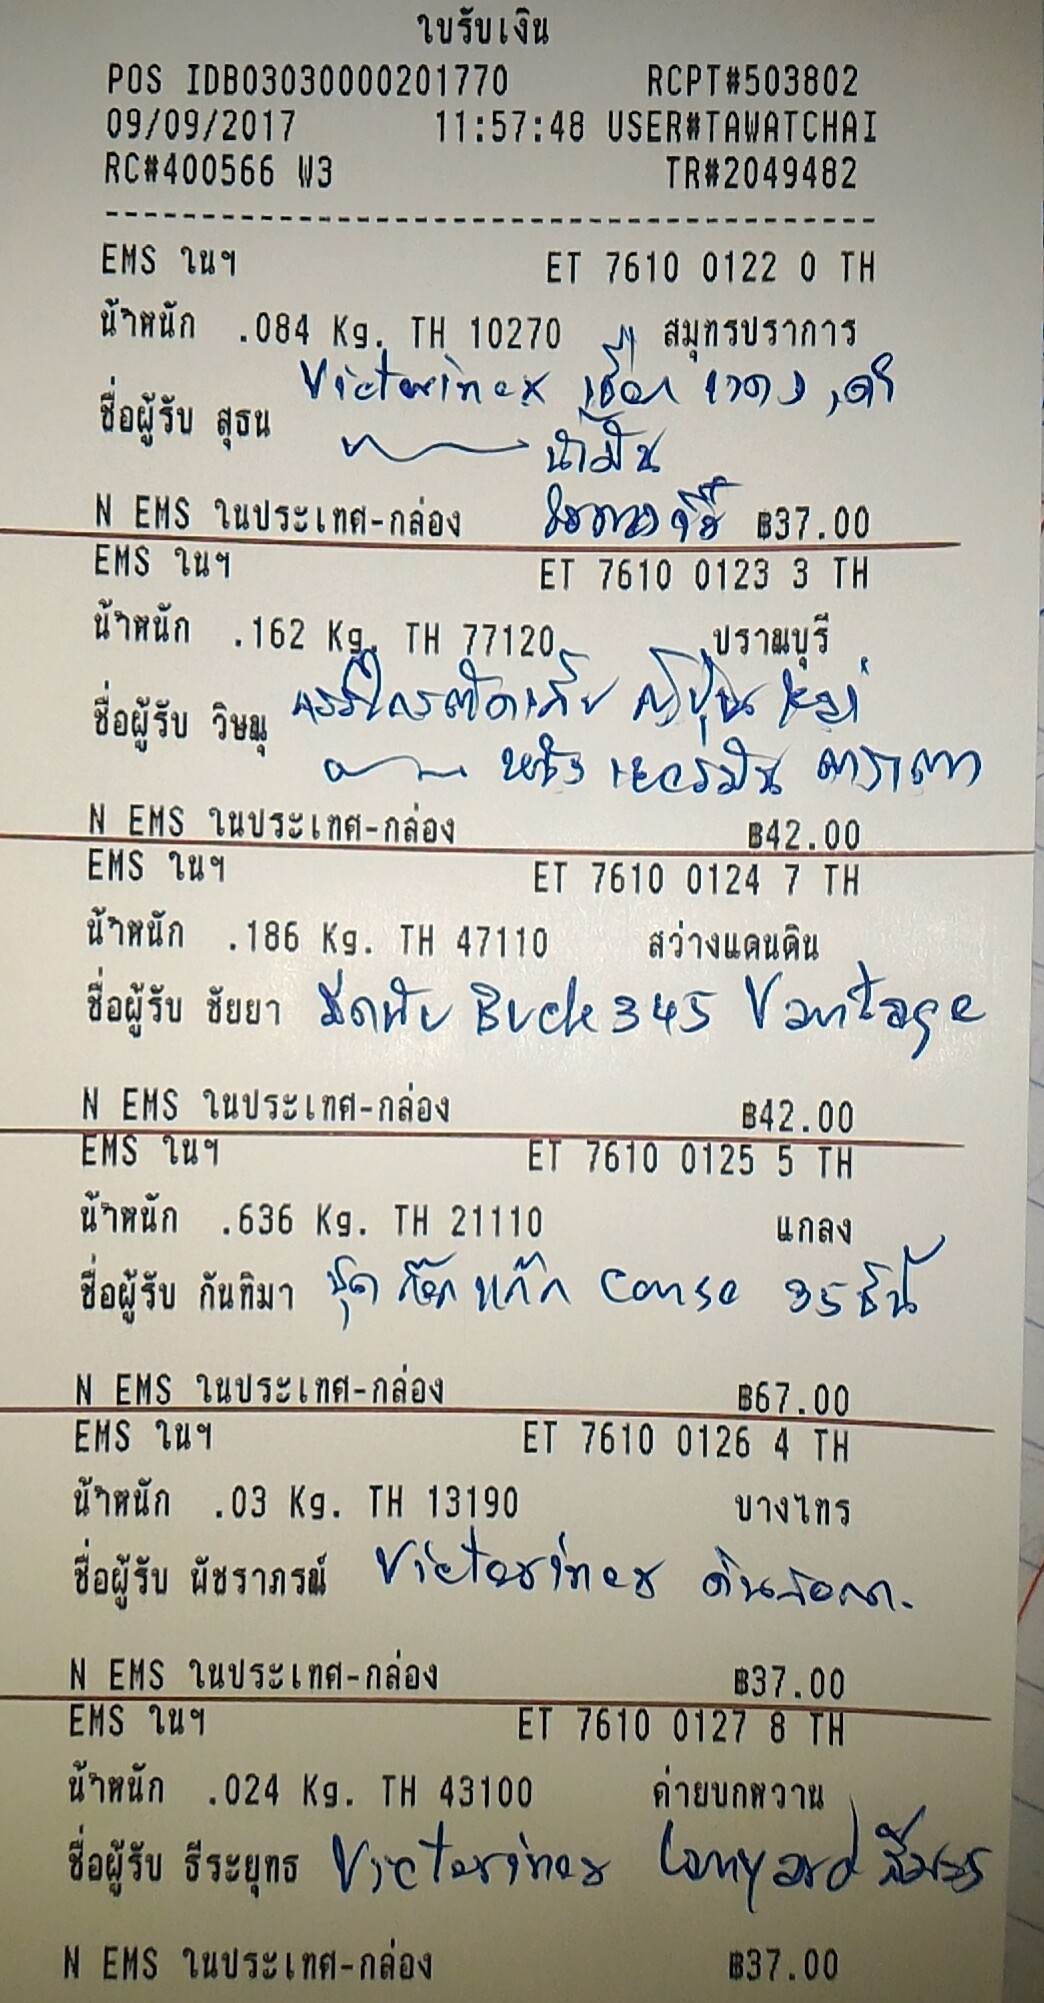 ใบรับเงิน
POS IDB03030000201770 RCPT#503802
09/09/2017 11:57:48 USER#TAWATCHAI
RC#400566 W3 TR#2049482
----------------------------------------
EMS ในฯ ET 7610 0122 0 TH
น้ำหนัก .084 Kg. TH 10270 สมุทรปราการ
Victorinox เชือก แดง,ดำ
ชื่อผู้รับ สุธน
น้ำมัน
N EMS ในประเทศ-กล่อง ฿37.00
EMS ในฯ ET 7610 0123 3 TH
น้ำหนัก .162 Kg. TH 77120 ปราณบุรี
กรรไกรตัดเล็บ ญี่ปุ่น
ชื่อผู้รับ วิษณุ
เยอรมัน
N EMS ในประเทศ-กล่อง ฿42.00
EMS ในฯ ET 7610 0124 7 TH
น้ำหนัก .186 Kg. TH 47110 สว่างแดนดิน
ชื่อผู้รับ ชัยยา มีดพับ Buck 345 Vantage
N EMS ในประเทศ-กล่อง ฿42.00
EMS ในฯ ET 7610 0125 5 TH
น้ำหนัก .636 Kg. TH 21110 แกลง
ชื่อผู้รับ กันทิมา ชุด 35 ชิ้น
N EMS ในประเทศ-กล่อง ฿67.00
EMS ในฯ ET 7610 0126 4 TH
น้ำหนัก .03 Kg. TH 13190 บางไทร
ชื่อผู้รับ พัชราภรณ์ Victorinox
N EMS ในประเทศ-กล่อง ฿37.00
EMS ในฯ ET 7610 0127 8 TH
น้ำหนัก .024 Kg. TH 43100 ค่ายบกหวาน
ชื่อผู้รับ ธีระยุทธ Victorinox Lanyard
N EMS ในประเทศ-กล่อง ฿37.00